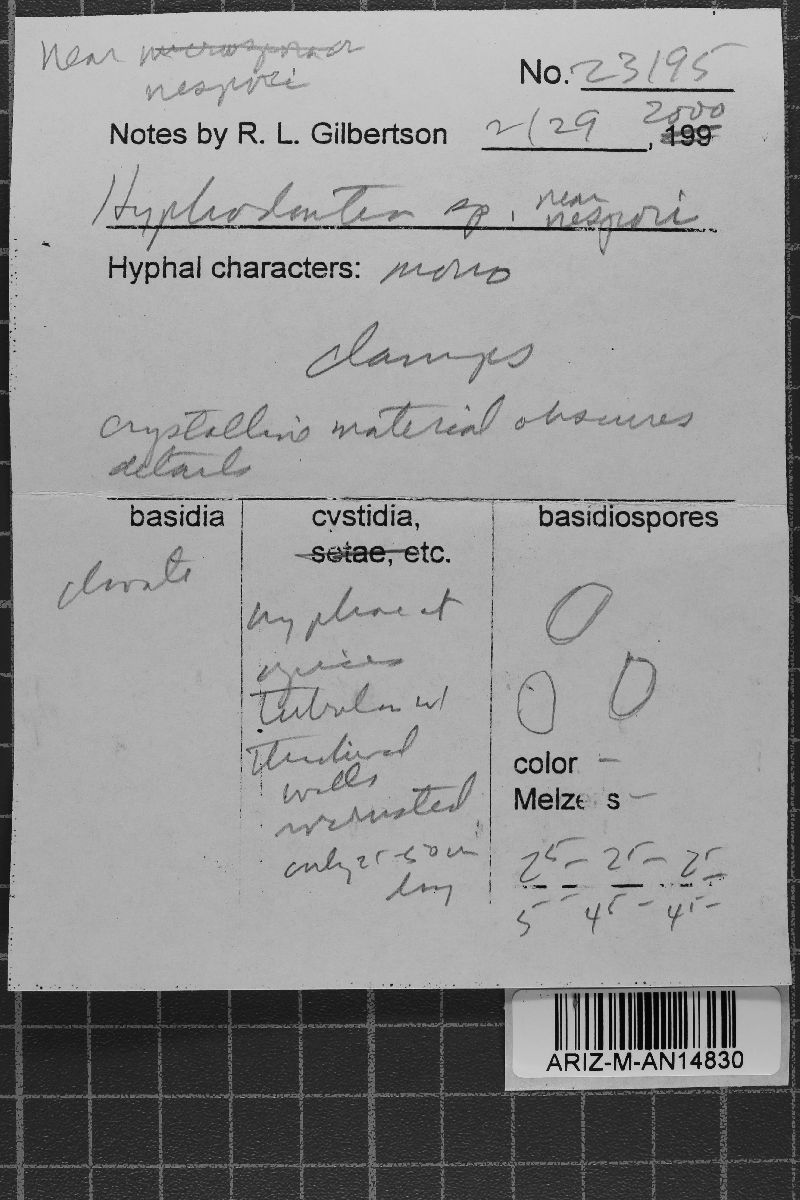 near microspora
nespori
No. 23195
Notes by R. L. Gilbertson 2/29 2000, 199
Hyphodontia sp. near nespori
Hyphal characters: mono
clamps
crystalline material obscures
details
basidia
clavate
cystidia,
setae, etc.
hyphae at
apices
tubular w/
thickened
walls
incrusted
only 25-50 um
long
basidiospores
color -
Melzer s -
25- 25- 25-
5- 45- 45-
ARIZ-M-AN14830